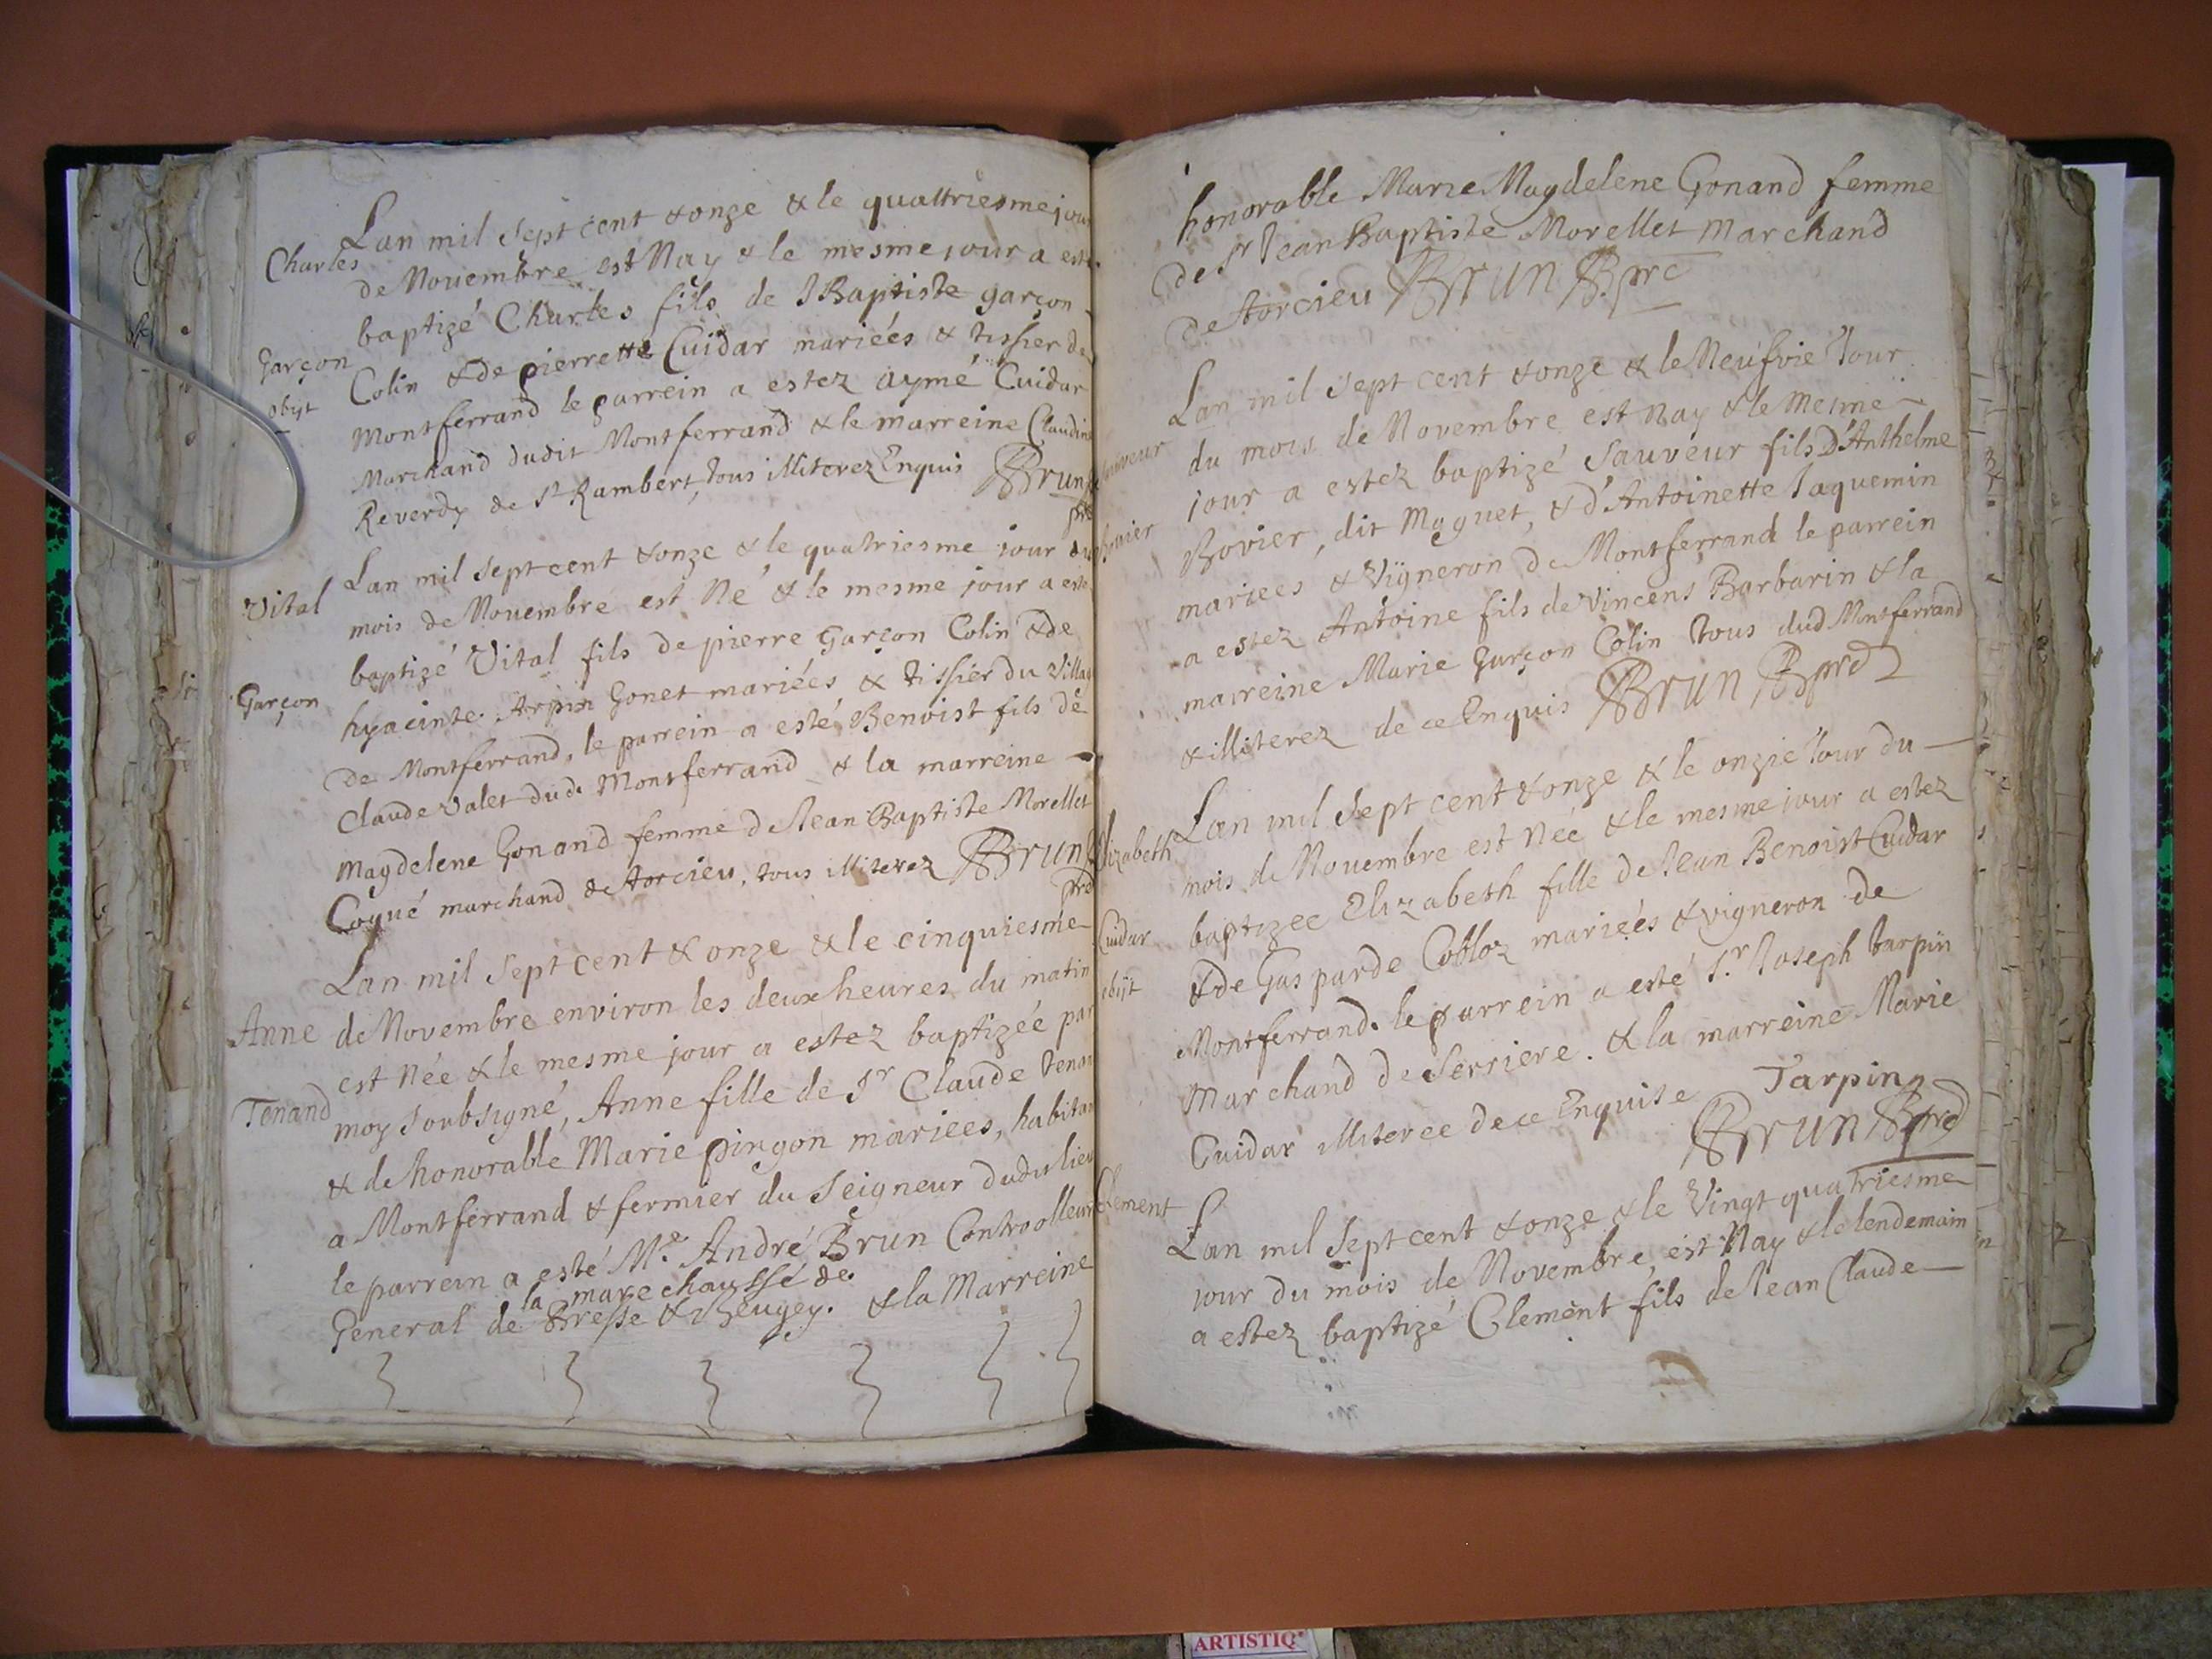 Lan mil sept cent & onze & le quattriesme jour
Charles
de Nouembre est Nay & le mesme jour a esté
baptizé Charles fils de J Baptiste garçon
Garçon
Colin & de pierrette Cuidar mariées & tissier de
obijt
Montferrand le parrein a estez aymé Cuidar
Marchand dudit Montferrand & le marreine Claudine
Reverdy de St Rambert, tous illiterez Enquis BBrun
Lan mil sept cent & onze & le quatriesme jour du
Vital
mois de Nouembre est Né & le mesme jour a esté
baptizé Vital fils de pierre Garçon Colin & de
Garçon
hyacinte Arpin Gonet mariées & tissier du Village
de Montferrand, le parrein a esté Benoist fils de
Claude Valet dud. Montferrand & la marreine
Magdelene Gonand femme d Jean Baptiste Morellet
Coqué marchand de Torcieu, tous illiterez BBrun
prd
Lan mil sept cent & onze & le cinquiesme
Anne
de Novembre environ les deux heures du matin
est Née & le mesme jour a estez baptizée par
Tenand
moy soubsigné, Anne fille de Sr Claude Tenand
& de honorable Marie pingon mariees, habitans
a Montferrand & fermier du Seigneur dudit lieu
le parrein a esté Me. André Brun Controolleur
la marechaussé de
General de Bresse & Beugey. & la Marreine
honorable Marie Magdelene Gonand femme
de Sr Jean Baptiste Morellet Marchand
de Torcieu BBrun Bprd
Lan mil sept cent & onze & le Neufvie Jour
du mois de Novembre est Nay & le Mesme
Sauveur
jour a estez baptizé Sauveur fils D'Anthelme
Bovier
Bovier, dit Moguet, & d'Antoinette Jaquemin
mariees & Vigneron de Montferrand le parrein
a estez Antoine fils de Vincens Barbarin & la
marreine Marie Garçon Colin tous dud Montferrand
& illiterez de ce Enquis BBrun Bprd
Lan mil sept cent & onze & le onzie Jour du
Elizabeth
mois de Nouembre est Née & le mesme jour a estez
baptizee Elizabeth fille de Jean Benoist Cuidar
Cuidar
& de Gasparde Cottloz mariées & vigneron de
obijt
Montferrand. le parrein a esté Sr. Joseph tarpin
Marchand de Serriere. & la marreine Marie
Cuidar illiteree de ce Enquise Tarpin
BBrun Bprd
Clement
Lan mil sept cent & onze & le Vingt quatriesme
jour du mois de Novembre, est Nay & le lendemain
a estez baptizé Clement fils de Jean Claude
ARTISTIQ